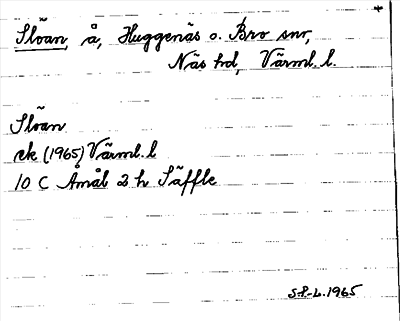 Slöan, å, Huggenäs o. Bro snr,
Näs hd, Värml. l.
Slöan
ek (1965) Värml. l
10 C Åmål 2 h Säffle
S.P.-L. 1965